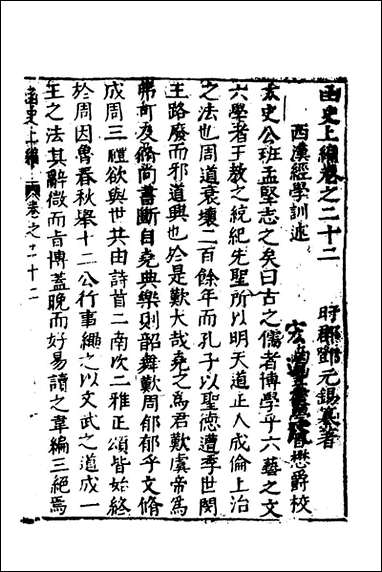 函史上編卷之二十二
盱郡鄧元錫纂著
西漢經學訓述
懋爵校
太史公班孟堅志之矣曰古之儒者博學乎六藝之文
六學者王敎之統紀先聖所以明天道正人成倫上治
之法也周道衰壞二百餘年而孔子以聖德遭季世関
王路廢而邪道興也於是歎大哉堯之爲君歎虞帝爲
弗可及脩尚書斷自堯典樂則韶舞歎周郁郁乎文脩
成周三禮欲與世共由詩首二南次二雅正頌皆始終
於周因魯春秋舉十二公行事繩之以文武之道成一
王之法其辭微而旨博蓋晚而好易讀之韋編三絕焉
函史上編 卷之二十二